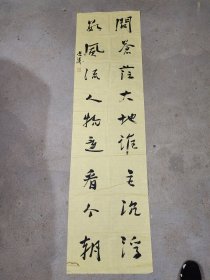 問蒼茫大地誰主沉浮
數風流人物還看今朝